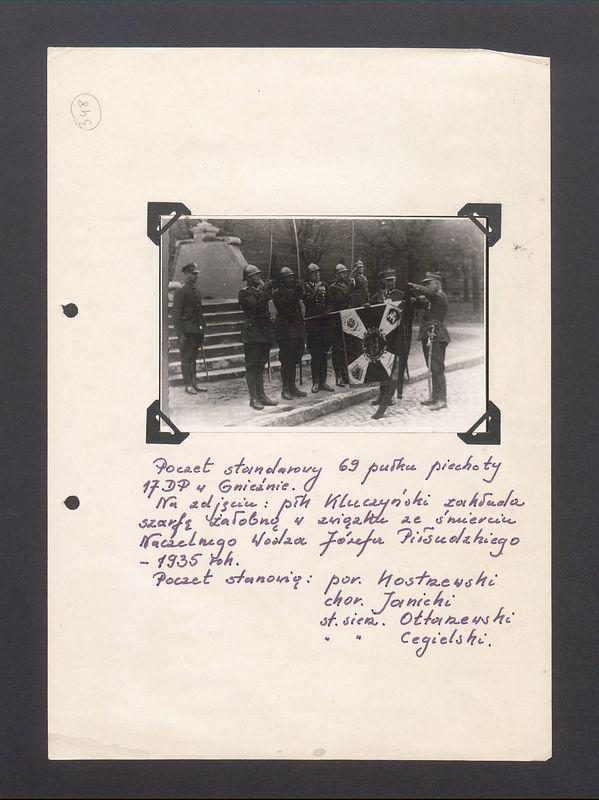 348
Poczet standarowy 69 pułku piechoty
17 DP w Gnieźnie.
Na zdjęciu: płk Kluczyński zakłada
szarfę żałobną w związku ze śmiercią
Naczelnego Wodza Józefa Piłsudzkiego
– 1935 rok.
Poczet stanowią: por. Kostrzewski
chor. Janicki
st. sierż. Ołtarzewski
" " Cegielski.